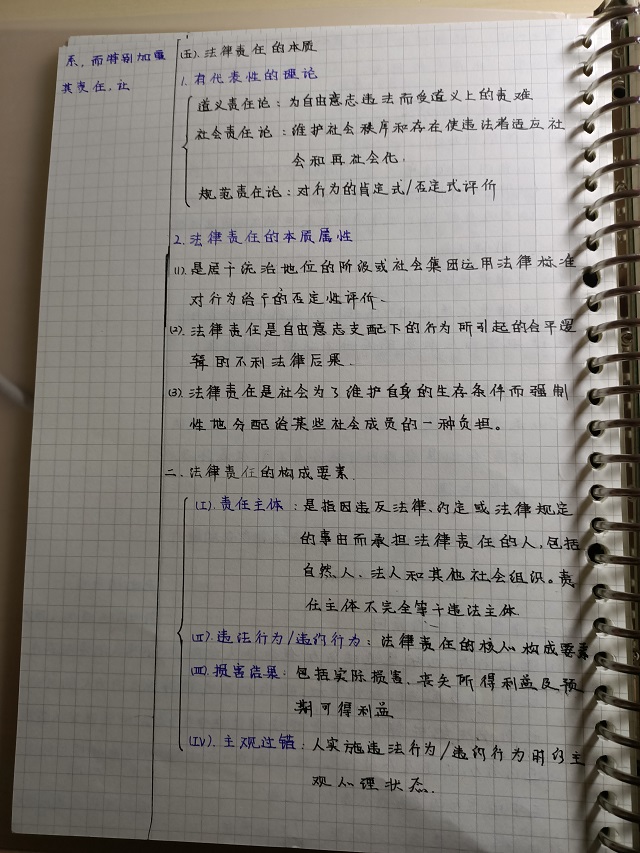 系，而特别加重
其责任，让
(五).法律责任的本质
1.有代表性的理论
道义责任论：为自由意志违法而受道义上的责难
社会责任论：维护社会秩序和存在使违法者适应社
会和再社会化.
规范责任论：对行为的肯定式/否定式评价
2.法律责任的本质属性
(1).是居于统治地位的阶级或社会集团运用法律标准
对行为给予的否定性评价.
(2).法律责任是自由意志支配下的行为所引起的合乎逻
辑的不利法律后果.
(3).法律责任是社会为了维护自身的生存条件而强制
性地分配给某些社会成员的一种负担。
二.法律责任的构成要素.
(I).责任主体：是指因违反法律、约定或法律规定
的事由而承担法律责任的人,包括
自然人、法人和其他社会组织。责
任主体不完全等于违法主体.
(II).违法行为/违约行为：法律责任的核心构成要素
(III).损害结果：包括实际损害、丧失所得利益及预
期可得利益
(IV).主观过错：人实施违法行为/违约行为时的主
观心理状态.